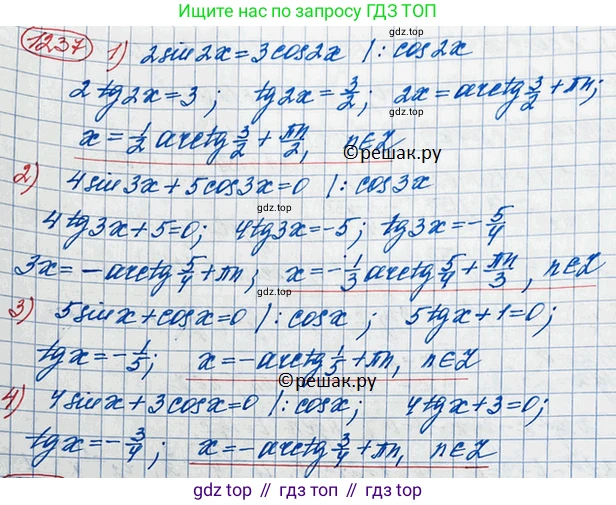 Ищите нас по запросу ГДЗ ТОП
1237 1) 2sin2x=3cos2x |:cos2x
gdz.top
2tg2x=3; tg2x=3/2; 2x=arctg3/2+πn;
gdz.top
x=1/2arctg3/2+πn/2, n∈Z
©решак.ру
gdz.top
2) 4sin3x+5cos3x=0 |:cos3x
gdz.top
4tg3x+5=0; 4tg3x=-5; tg3x=-5/4
gdz.top
3x=-arctg5/4+πn; x=-1/3arctg5/4+πn/3, n∈Z
gdz.top
3) 5sinx+cosx=0 |:cosx; 5tgx+1=0;
gdz.top
tgx=-1/5; x=-arctg1/5+πn, n∈Z
©решак.ру
gdz.top
4) 4sinx+3cosx=0 |:cosx; 4tgx+3=0;
gdz.top
tgx=-3/4; x=-arctg3/4+πn, n∈Z
gdz.top
gdz top // гдз топ // gdz.top